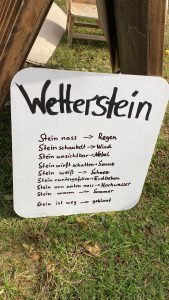 Wetterstein
Stein nass → Regen
Stein schaukelt → Wind
Stein unsichtbar → Nebel
Stein wirft schatten → Sonne
Stein weiß → Schnee
Stein runtergefallen → Erdbeben
Stein von unten nass → Hochwasser
Stein warm → Sommer
Stein ist weg → geklaut